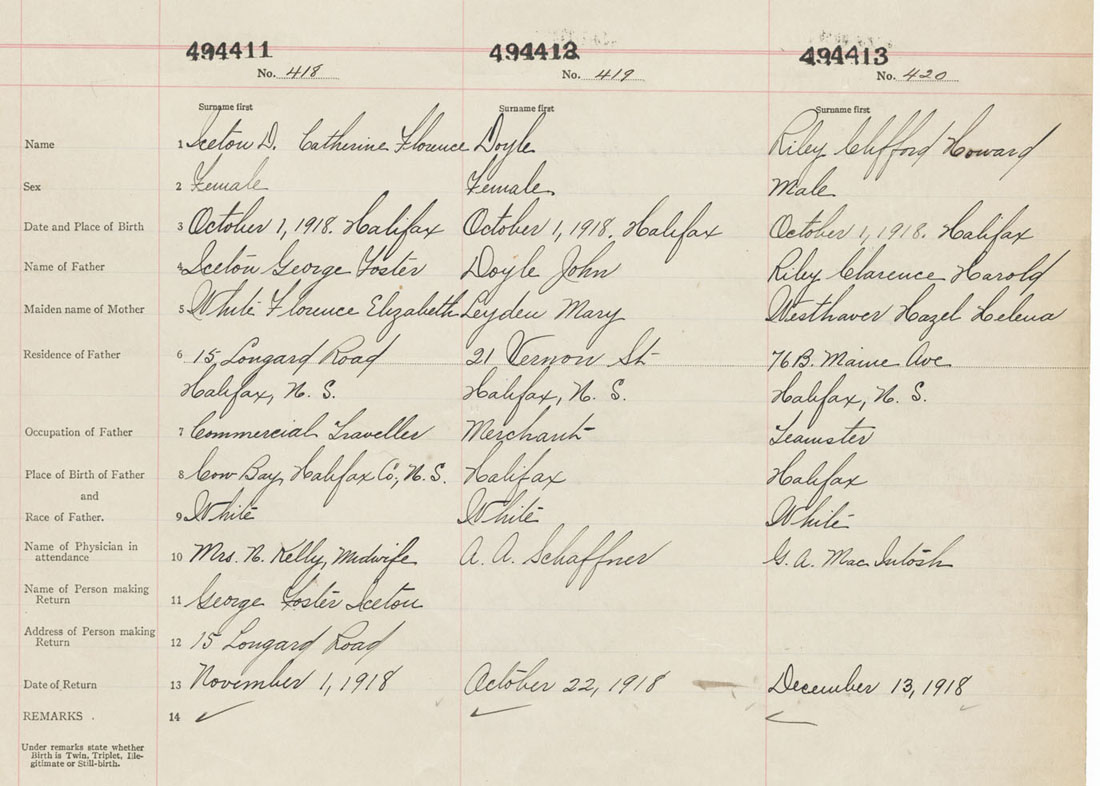 494411 494412 494413
No. 418 No. 419 No. 420
Surname first Surname first Surname first
Name 1 Iceton D. Catherine Florence Doyle Riley Clifford Howard
Sex 2 Female Female Male
Date and Place of Birth 3 October 1, 1918. Halifax October 1, 1918. Halifax October 1, 1918. Halifax
Name of Father 4 Iceton George Foster Doyle John Riley Clarence Harold
Maiden name of Mother 5 White Florence Elizabeth Leyden Mary Westhaver Hazel Helena
Residence of Father 6 15 Longard Road 21 Vernon St 76B. Maine Ave
Halifax, N. S. Halifax, N. S. Halifax, N. S.
Occupation of Father 7 Commercial Traveller Merchant Teamster
Place of Birth of Father 8 Cow Bay, Halifax Co, N. S. Halifax Halifax
and
Race of Father. 9 White White White
Name of Physician in
attendance 10 Mrs. N. Kelly, Midwife A. A. Schaffner G. A. MacIntosh
Name of Person making
Return 11 George Foster Iceton
Address of Person making
Return 12 15 Longard Road
Date of Return 13 November 1, 1918 October 22, 1918 December 13, 1918
REMARKS . 14
Under remarks state whether
Birth is Twin, Triplet, Ille-
gitimate or Still-birth.